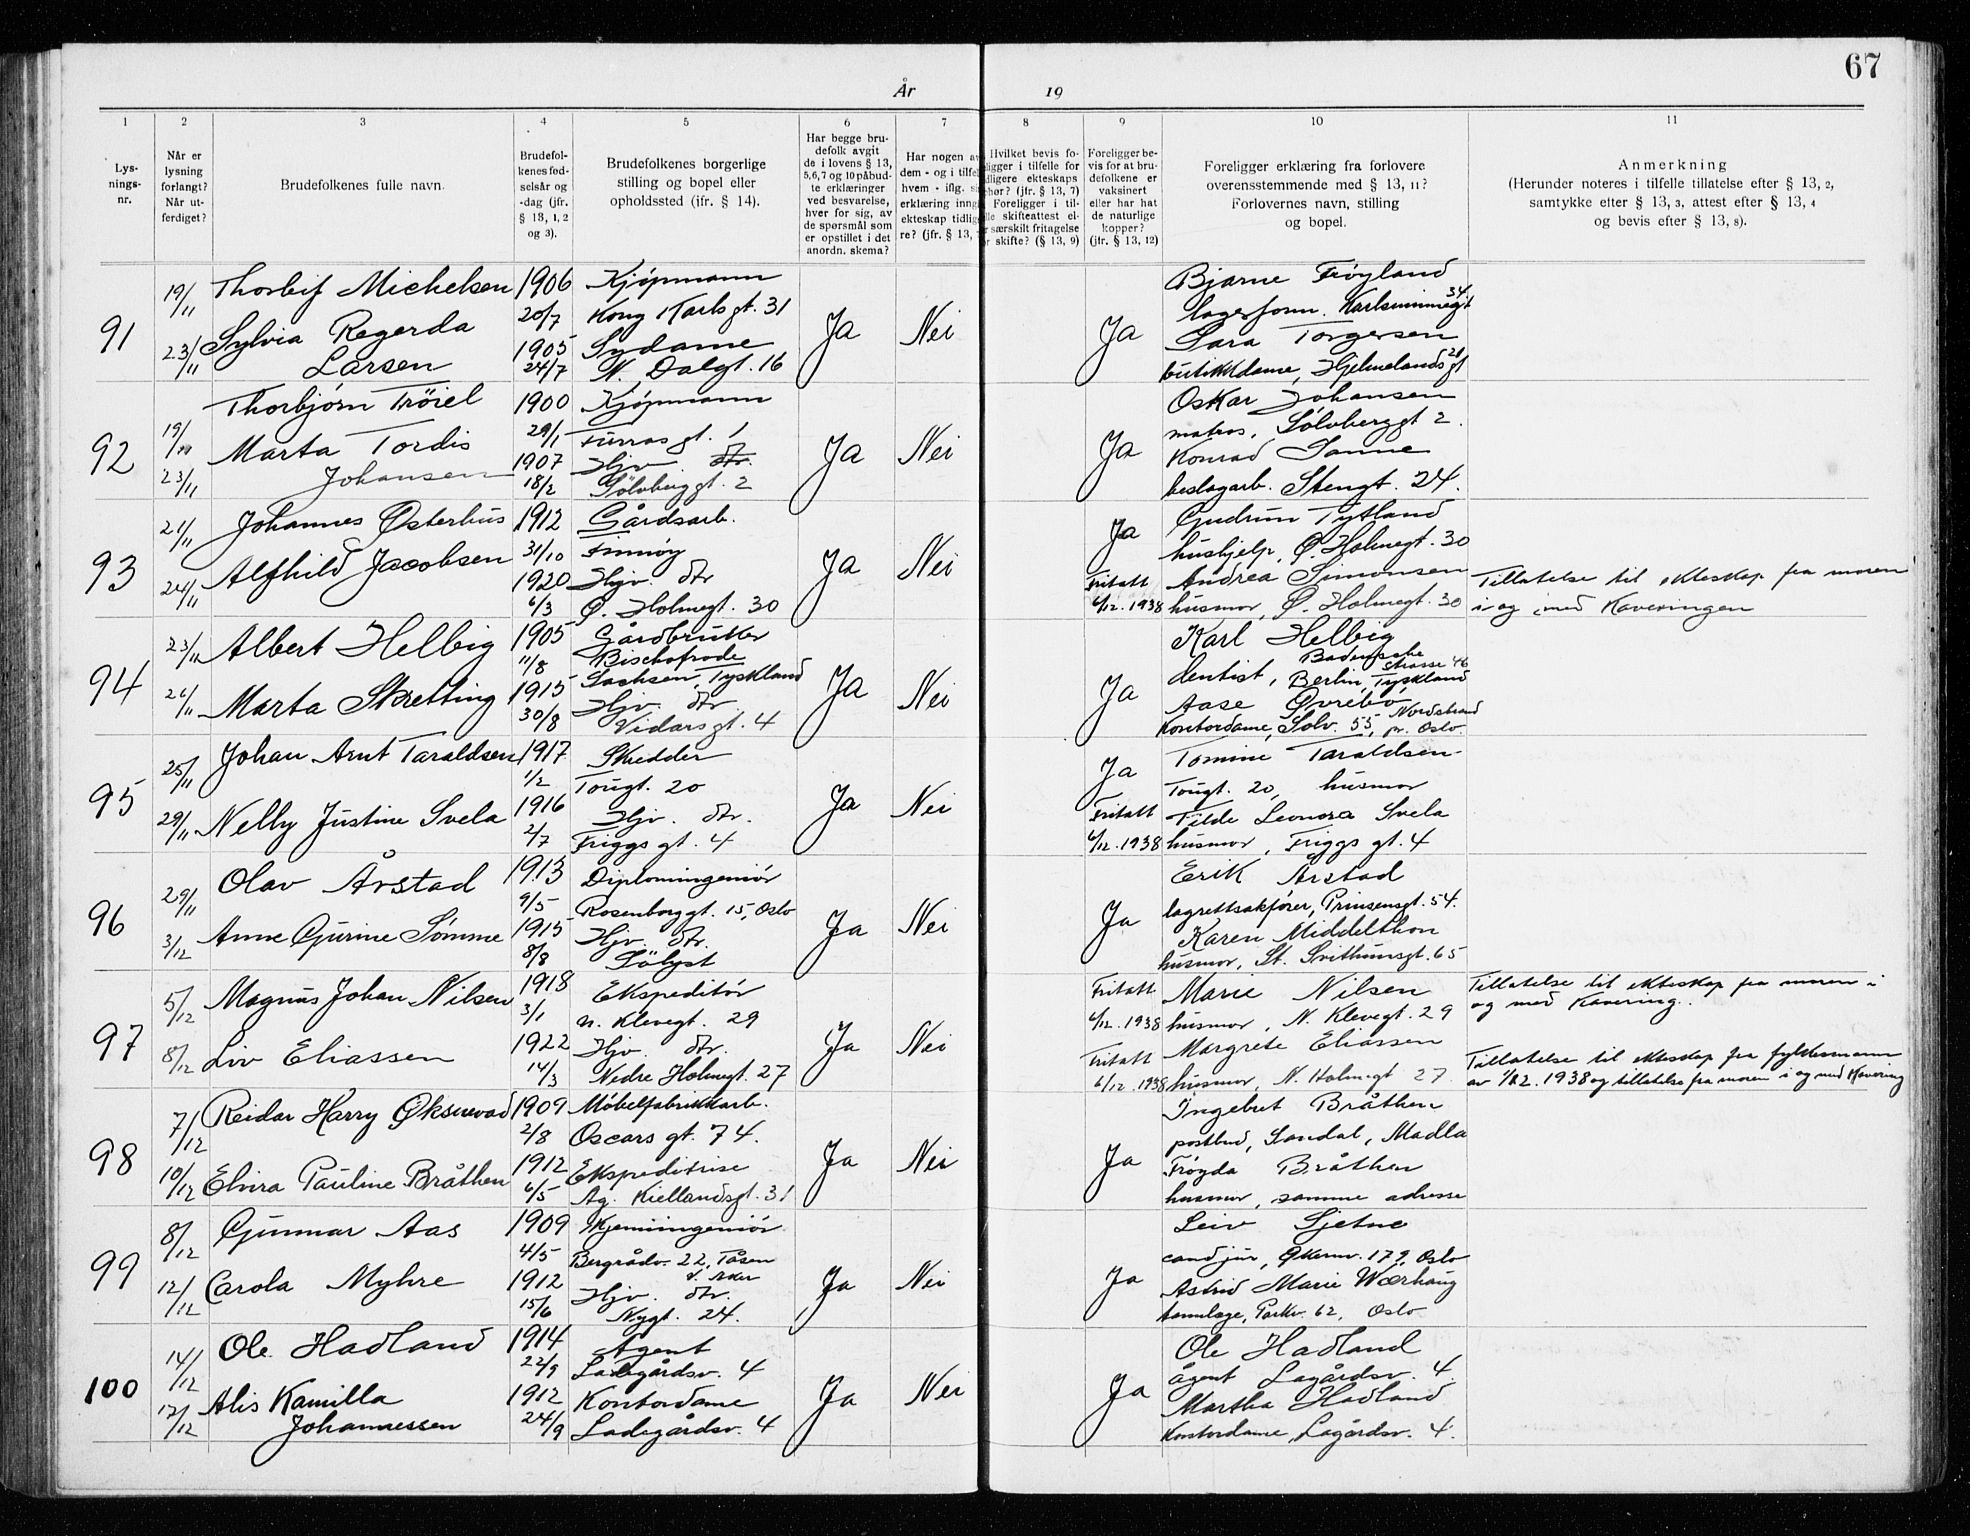 67
År 19
1 2 3 4 5 6 7 8 9 10 11
Lys-
nings-
nr.
Når er
lysning
forlangt?
Når ut-
ferdiget?
Brudefolkenes fulle navn.
Brudefol-
kenes fød-
selsår og
-dag (jfr.
§ 13, 1, 2
og 3).
Brudefolkenes borgerlige
stilling og bopel eller
opholdssted (jfr. § 14).
Har begge bru-
defolk avgit
de i lovens § 13,
5, 6, 7 og 10 påbud-
te erklæringer
ved besvarelse,
hver for sig, av
de spørsmål som
er opstillet i det
anordn. skema?
Har nogen av
dem - og i tilfel
hvem - iflg. si
erklæring inng
ekteskap tidlig
re? (jfr. § 13,
Hvilket bevis fo-
ligger i tilfelle for
dligere ekteskaps
hør? (jfr. § 13, 7)
Foreligger i til-
lle skifteattest el-
r særskilt fritagelse
r skifte? (§ 13, 9)
Foreligger be-
vis for at bru-
defolkene er
vaksinert
eller har hat
de naturlige
kopper?
(jfr. § 13, 12)
Foreligger erklæring fra forlovere
overensstemmende med § 13, 11?
Forlovernes navn, stilling
og bopel.
Anmerkning
(Herunder noteres i tilfelle tillatelse efter § 13, 2,
samtykke efter § 13, 3, attest efter § 13, 4
og bevis efter § 13, 8).
91
19/11
23/11
Thorleif Michelsen
Sylvia Regerda
Larsen
1906
20/7
1905
24/7
Kjøpmann
Kong Karls gt. 31
Sydame
N. Dalgt. 16
Ja
Nei
Ja
Bjarne Frøyland
lagerform. Karlsminnegt 34
Sara Torgersen
butikkdame, Hjelmelandsgt 21
92
19/11
23/11
Thorbjørn Tröiel
Marta Tordis
Johansen
1900
29/1
1907
18/2
Kjøpmann
Furrasgt. 1
Hjv. dtr.
Sölvberggt. 2
Ja
Nei
Ja
Oskar Johansen
matros, Sølvberggt 2.
Konrad Sanne
beslagarb. Stengt. 24.
93
21/11
24/11
Johannes Østerhus
Alfhild Jacobsen
1912
31/10
1920
6/3
Gårdsarb.
Finnøy
Hjv. dtr
Ø. Holmegt. 30
Ja
Nei
Ja
Fritatt
6/12. 1938
Gudrun Tytland
hushjelp, Ø. Holmegt. 30
Andrea Simonsen
husmor, Ø. Holmegt. 30
Tillatelse til ekteskap fra moren
i og med Kaveringen
94
23/11
26/11
Albert Helbig
Marta Skretting
1905
11/8
1915
30/8
Gårdbruker
Bischofrode
Sachsen, Tyskland
Hjv. dtr
Vidarsgt. 4
Ja
Nei
Ja
Karl Helbig
dentist, Badensche
strasse 46
Berlin, Tyskland
Aase Øvrebö,
Kontordame, Solv. 55, Nordstrand
pr. Oslo
95
25/11
29/11
Johan Arnt Taraldsen
Nelly Justine Svela
1917
1/2
1916
2/7
Skredder
Tougt. 20
Hjv. dtr.
Friggs gt. 4
Ja
Nei
Ja
Fritatt
6/12. 1938
Tomine Taraldsen
Tougt. 20, husmor
Tilde Leonora Svela
husmor, Friggs gt. 4
96
29/11
3/12
Olav Årstad
Anne Gurine Sömme
1913
9/5
1915
8/8
Diplomingeniør
Rosenborggt. 15, Oslo
Hjv. dtr.
Sölyst
Ja
Nei
Ja
Erik Årstad
lagrettsakfører, Prinsensgt. 54.
Karen Middelthon
husmor, St. Svithunsgt. 65
97
5/12
8/12
Magnus Johan Nilsen
Liv Eliassen
1918
3/1
1922
14/3
Ekspeditör
N. Klevegt. 29
Hjv. dtr.
Nedre Holmegt. 27
Ja
Nei
Fritatt
6/12. 1938
Fritatt
6/12. 1938
Marie Nilsen
husmor, N. Klevegt. 29
Margrete Eliassen
husmor, N. Holmegt 27
Tillatelse til ekteskap fra moren i
og med Kavering.
Tillatelse til ekteskap fra fylkesmann
av 1/12. 1938 og tillatelse fra moren i og med Kavering
98
7/12
10/12
Reidar Harry Øksnevad
Elvira Pauline Bråthen
1909
2/8
1912
6/5
Møbelfabrikkarb.
Oscars gt. 74.
Ekspeditrise
Ag. Kiellandsgt. 31
Ja
Nei
Ja
Ingebret Bråthen
postbud, Sandal, Madla
Frøyda Bråthen
husmor, samme adresse
99
8/12
12/12
Gunnar Aas
Carola Myhre
1909
4/5
1912
15/6
Kjemiingeniør
Bergrådv. 22, Tåsen
V. Aker
Hjv. dtr.
Nygt. 24.
Ja
Nei
Ja
Leiv Sjetne
cand jur, Økernv. 179, Oslo
Astrid Marie Wærhaug
tannlæge, Parkv. 62, Oslo
100
14/12
17/12
Ole Hadland
Alis Kamilla
Johannessen
1914
22/9
1912
24/9
Agent
Ladegårdsv. 4
Kontordame
Ladegårdsv. 4
Ja
Nei
Ja
Ole Hadland
Agent Lagårdsv. 4.
Martha Hadland
Kontordame, Lagårdsv. 4.